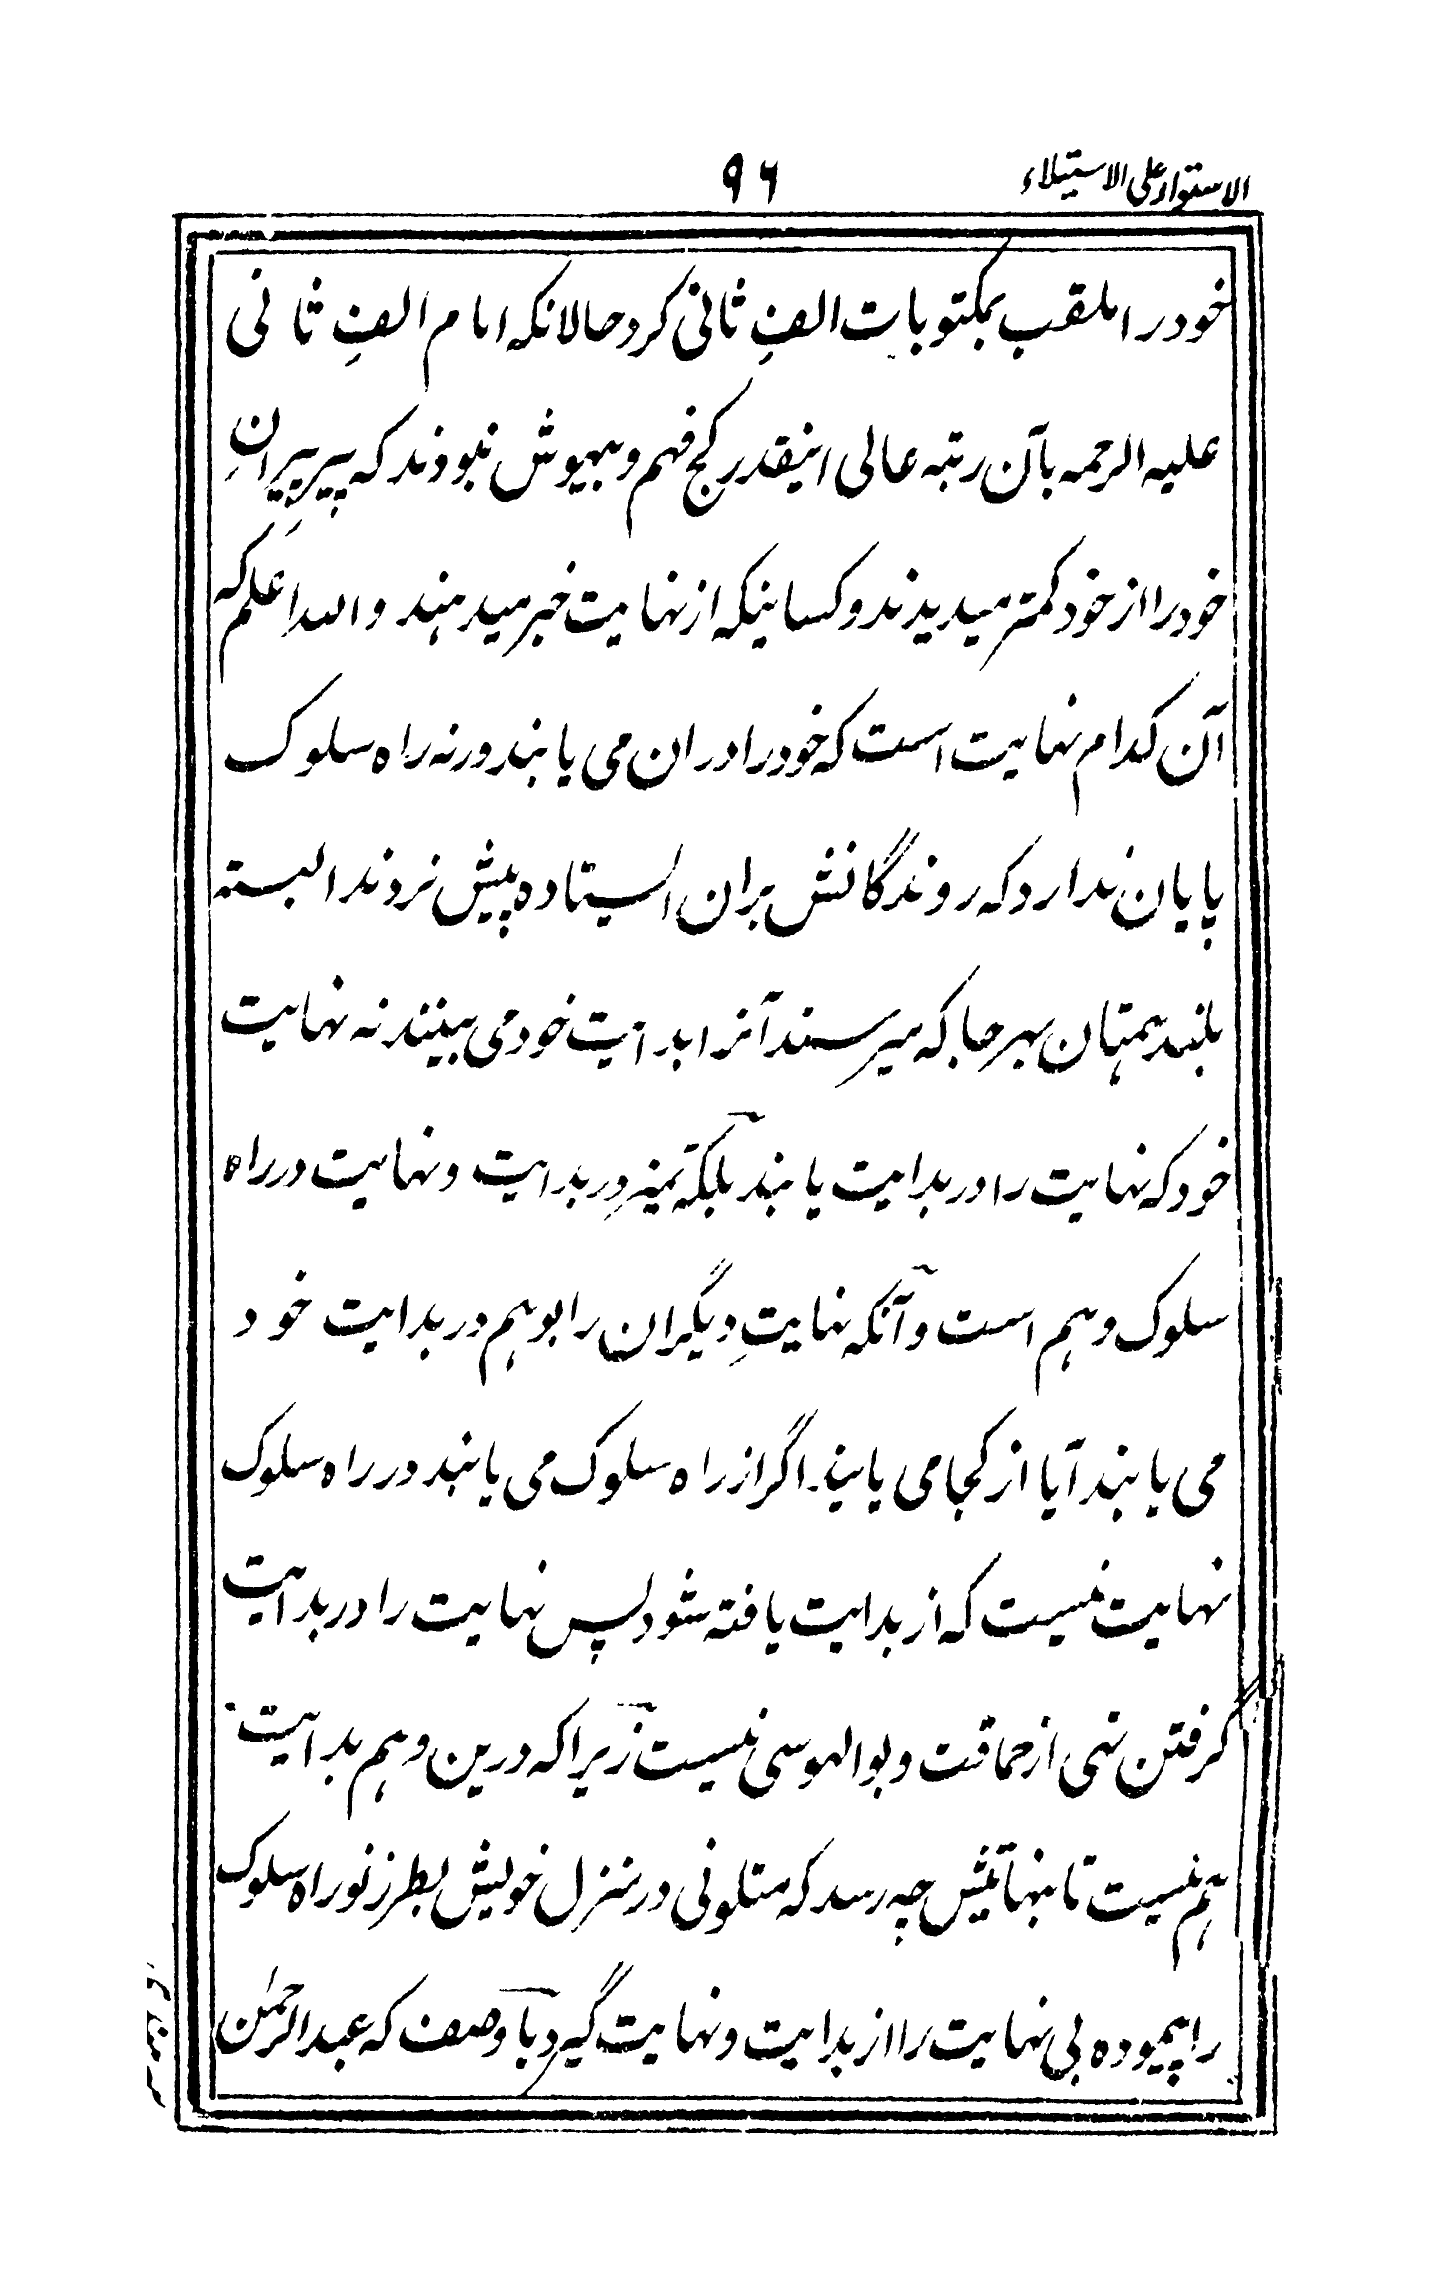 الاستواء علی الاستیلاء
۹۶
خود را ملقب بمکتوبات الفِ ثانی کرد حالانکہ امام الفِ ثانی
علیہ الرحمہ بآن رتبہ عالی اینقدر کج فہم و بیہوش نبودند کہ پیرِ پیرانِ
خود را از خود کمتر میدیدند و کسانیکہ از نہایت خبر میدہند واللہ اعلم کہ
آن کدام نہایت است کہ خود را دران می یابند ورنہ راہ سلوک
پایان ندارد کہ روندگانش بران ایستادہ پیش نروند البتہ
بلند ہمتان بہر جا کہ میرسند آنرا بدایت خود می بینند نہ نہایت
خود کہ نہایت را در بدایت یابند بلکہ تمیزِ در بدایت و نہایت در راہ
سلوک وہم است و آنکہ نہایتِ دیگران را بوہم در بدایت خود
می یابند آیا از کجا می یابند۔ اگر از راہ سلوک می یابند در راہ سلوک
نہایت نیست کہ از بدایت یافتہ شود پس نہایت را در بدایت
گرفتن تہی از حماقت و بوالہوسی نیست زیرا کہ درین وہم بدایت
ہم نیست تا بنہایتش چہ رسد کہ متلونی در منزل خویش بطرز نو راہ سلوک
را پیمودہ بی نہایت را از بدایت و نہایت گیرد با وصف کہ عبدالرحمٰن